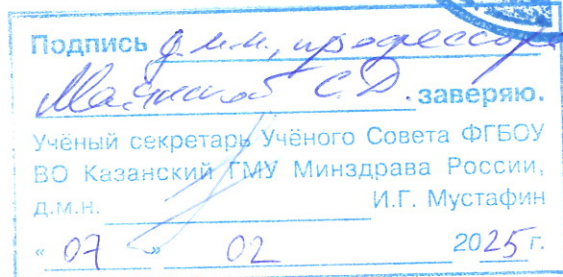 Подпись д.м.н., профессора
Маянской С.Д. заверяю.
Учёный секретарь Учёного Совета ФГБОУ
ВО Казанский ГМУ Минздрава России,
д.м.н. И.Г. Мустафин
« 07 » 02 2025 г.